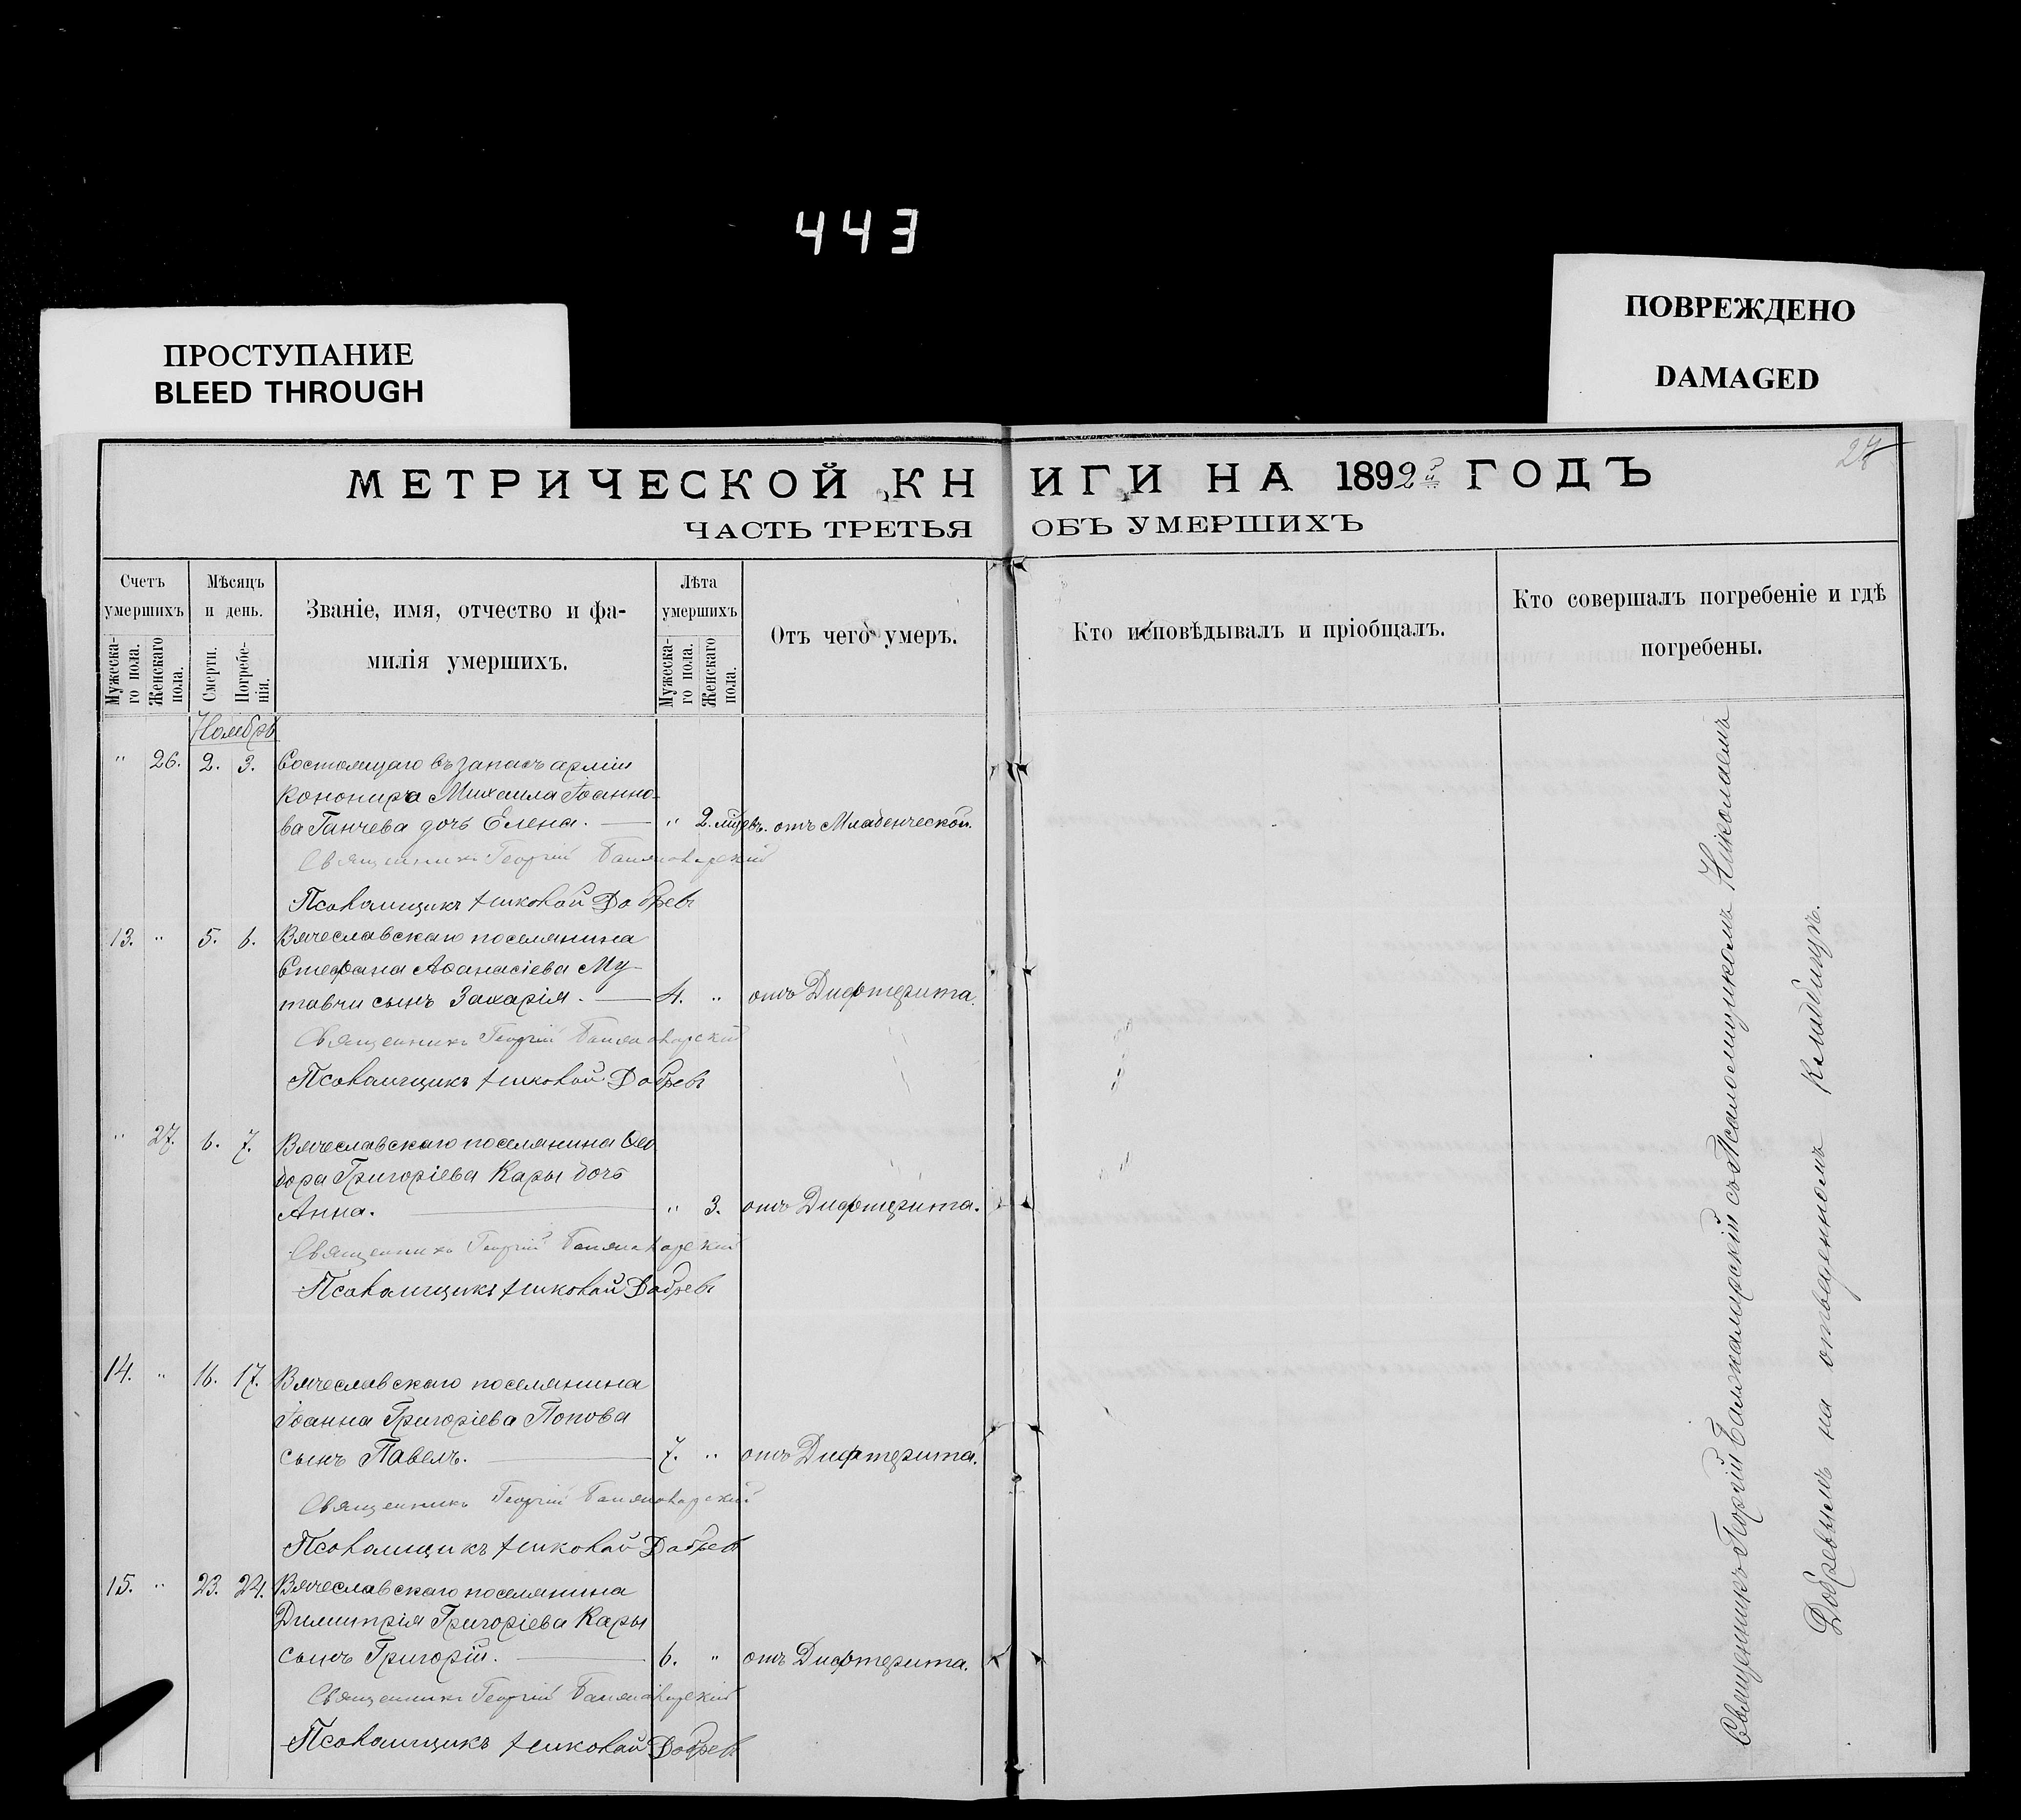 443
ПРОСТУПАНИЕ
BLEED THROUGH
ПОВРЕЖДЕНО
DAMAGED
28
МЕТРИЧЕСКОЙ КНИГИ НА 1892й ГОДЪ
ЧАСТЬ ТРЕТЬЯ ОБЪ УМЕРШИХЪ
Счетъ умершихъ
Мужеска-го пола.
Женскаго пола.
Мѣсяцъ и день.
Смерти.
Погребе-нія.
Званіе, имя, отчество и фа-
милія умершихъ.
Лѣта умершихъ
Мужеска-го пола.
Женскаго пола.
Отъ чего умеръ.
Кто исповѣдывалъ и пріобщалъ.
Кто совершалъ погребеніе и гдѣ
погребены.
Ноябрь
" 26. 2. 3. Состоящаго въ запасѣ арміи
Канонира Михаила Іоанно-
ва Ганчева дочь Елена. — " 2. мѣсъ. отъ Младенческой.
Священникъ Георгій
Псаломщикъ Николай Добревъ
13. " 5. 6. Вячеславскаго поселянина
Стефана Аѳанасіева Му-
тавчи сынъ Захарія. — 4. " отъ Дифтерита.
Священникъ Георгій
Псаломщикъ Николай Добревъ
" 27. 6. 7. Вячеславскаго поселянина Ѳео
дора Григоріева Кары дочь
Анна. — " 3. отъ Дифтерита.
Священникъ Георгій
Псаломщикъ Николай Добревъ
14. " 16. 17. Вячеславскаго поселянина
Іоанна Григоріева Попова
сынъ Павелъ. — 7. " отъ Дифтерита.
Священникъ Георгій
Псаломщикъ Николай Добревъ
15. " 23. 24. Вячеславскаго поселянина
Димитрія Григоріева Кары
сынъ Григорій. — 6. " отъ Дифтерита.
Священникъ Георгій
Псаломщикъ Николай Добревъ
Священникъ Георгій съ Псаломщикомъ Николаемъ
Добревымъ на отведенномъ кладбищѣ.